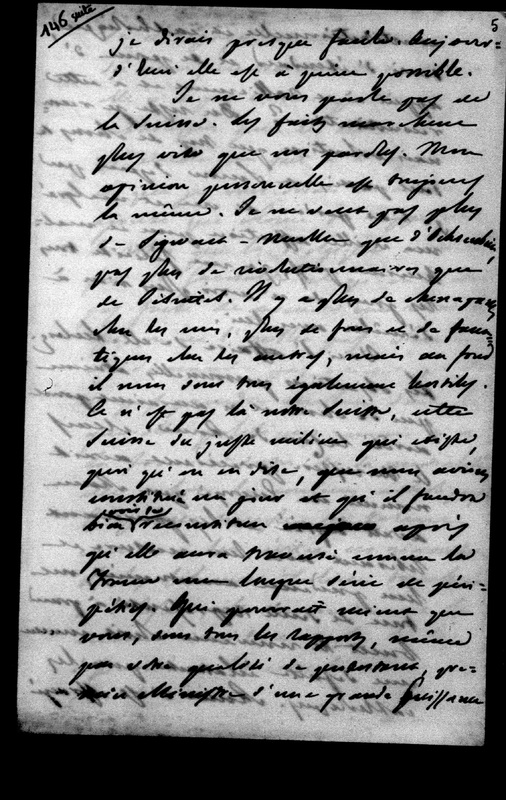 146 suite
5
je dirais presque facile. Aujour=
d'hui elle est à peine possible.
Je ne vous parle pas de
la Suisse. Les faits marchent
plus vite que nos paroles. Mon
opinion personnelle est toujours
la même. Je ne veux pas plus
de Sigwart-Muller que d'Ochsenbein,
pas plus de révolutionnaires que
de Jésuites. Il y a plus de
chez les uns, plus de fous et de fana=
tiques chez les autres, mais au fond
il nous sont tous également hostiles.
Ce n'est pas là notre Suisse, cette
Suisse du juste milieu qui existe,
quoi qu'on en dise, que nous avions
constitué un jour et qu'il faudra
bien reconstituer après
qu'elle aura traversé comme la
France une longue série de péri-
péties. Qui pourrait mieux que
vous, sous tous les rapports, même
par votre qualité de protestant, pre-
mier Ministre d'une grande puissance